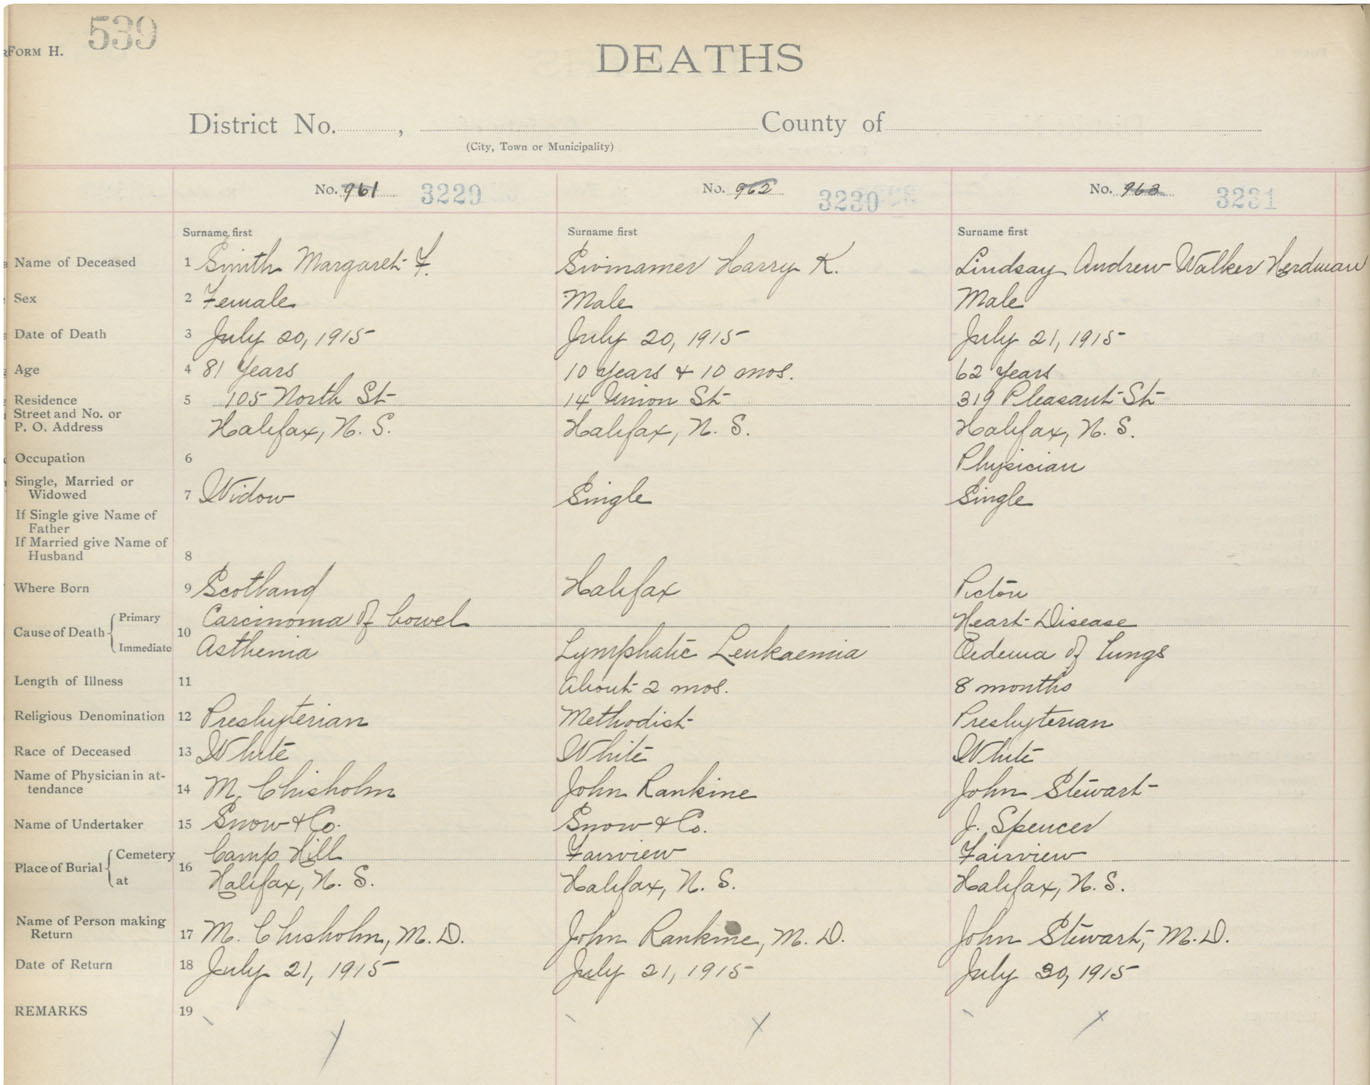 FORM H.
539
DEATHS
District No. , County of
(City, Town or Municipality)
No. 961 3229
No. 962 3230
No. 963 3231
Surname first
Surname first
Surname first
Name of Deceased 1 Smith Margaret F. Swinamer Harry K. Lindsay Andrew Walker Herdman
Sex 2 Female Male Male
Date of Death 3 July 20, 1915 July 20, 1915 July 21, 1915
Age 4 81 Years 10 Years + 10 mos. 62 Years
Residence 5 105 North St 14 Union St 319 Pleasant St
Street and No. or
P. O. Address Halifax, N. S. Halifax, N. S. Halifax, N. S.
Occupation 6 Physician
Single, Married or
Widowed 7 Widow Single Single
If Single give Name of
Father
If Married give Name of
Husband 8
Where Born 9 Scotland Halifax Pictou
Cause of Death 10
Primary Carcinoma of bowel Heart Disease
Immediate Asthenia Lymphatic Leukaemia Oedema of Lungs
Length of Illness 11 About 2 mos. 8 months
Religious Denomination 12 Presbyterian Methodist Presbyterian
Race of Deceased 13 White White White
Name of Physician in at-
tendance 14 M. Chisholm John Rankine John Stewart
Name of Undertaker 15 Snow & Co. Snow & Co. J. Spencer
Place of Burial 16
Cemetery Camp Hill Fairview Fairview
at Halifax, N. S. Halifax, N. S. Halifax, N. S.
Name of Person making
Return 17 M. Chisholm, M.D. John Rankine, M. D. John Stewart, M.D.
Date of Return 18 July 21, 1915 July 21, 1915 July 30, 1915
REMARKS 19